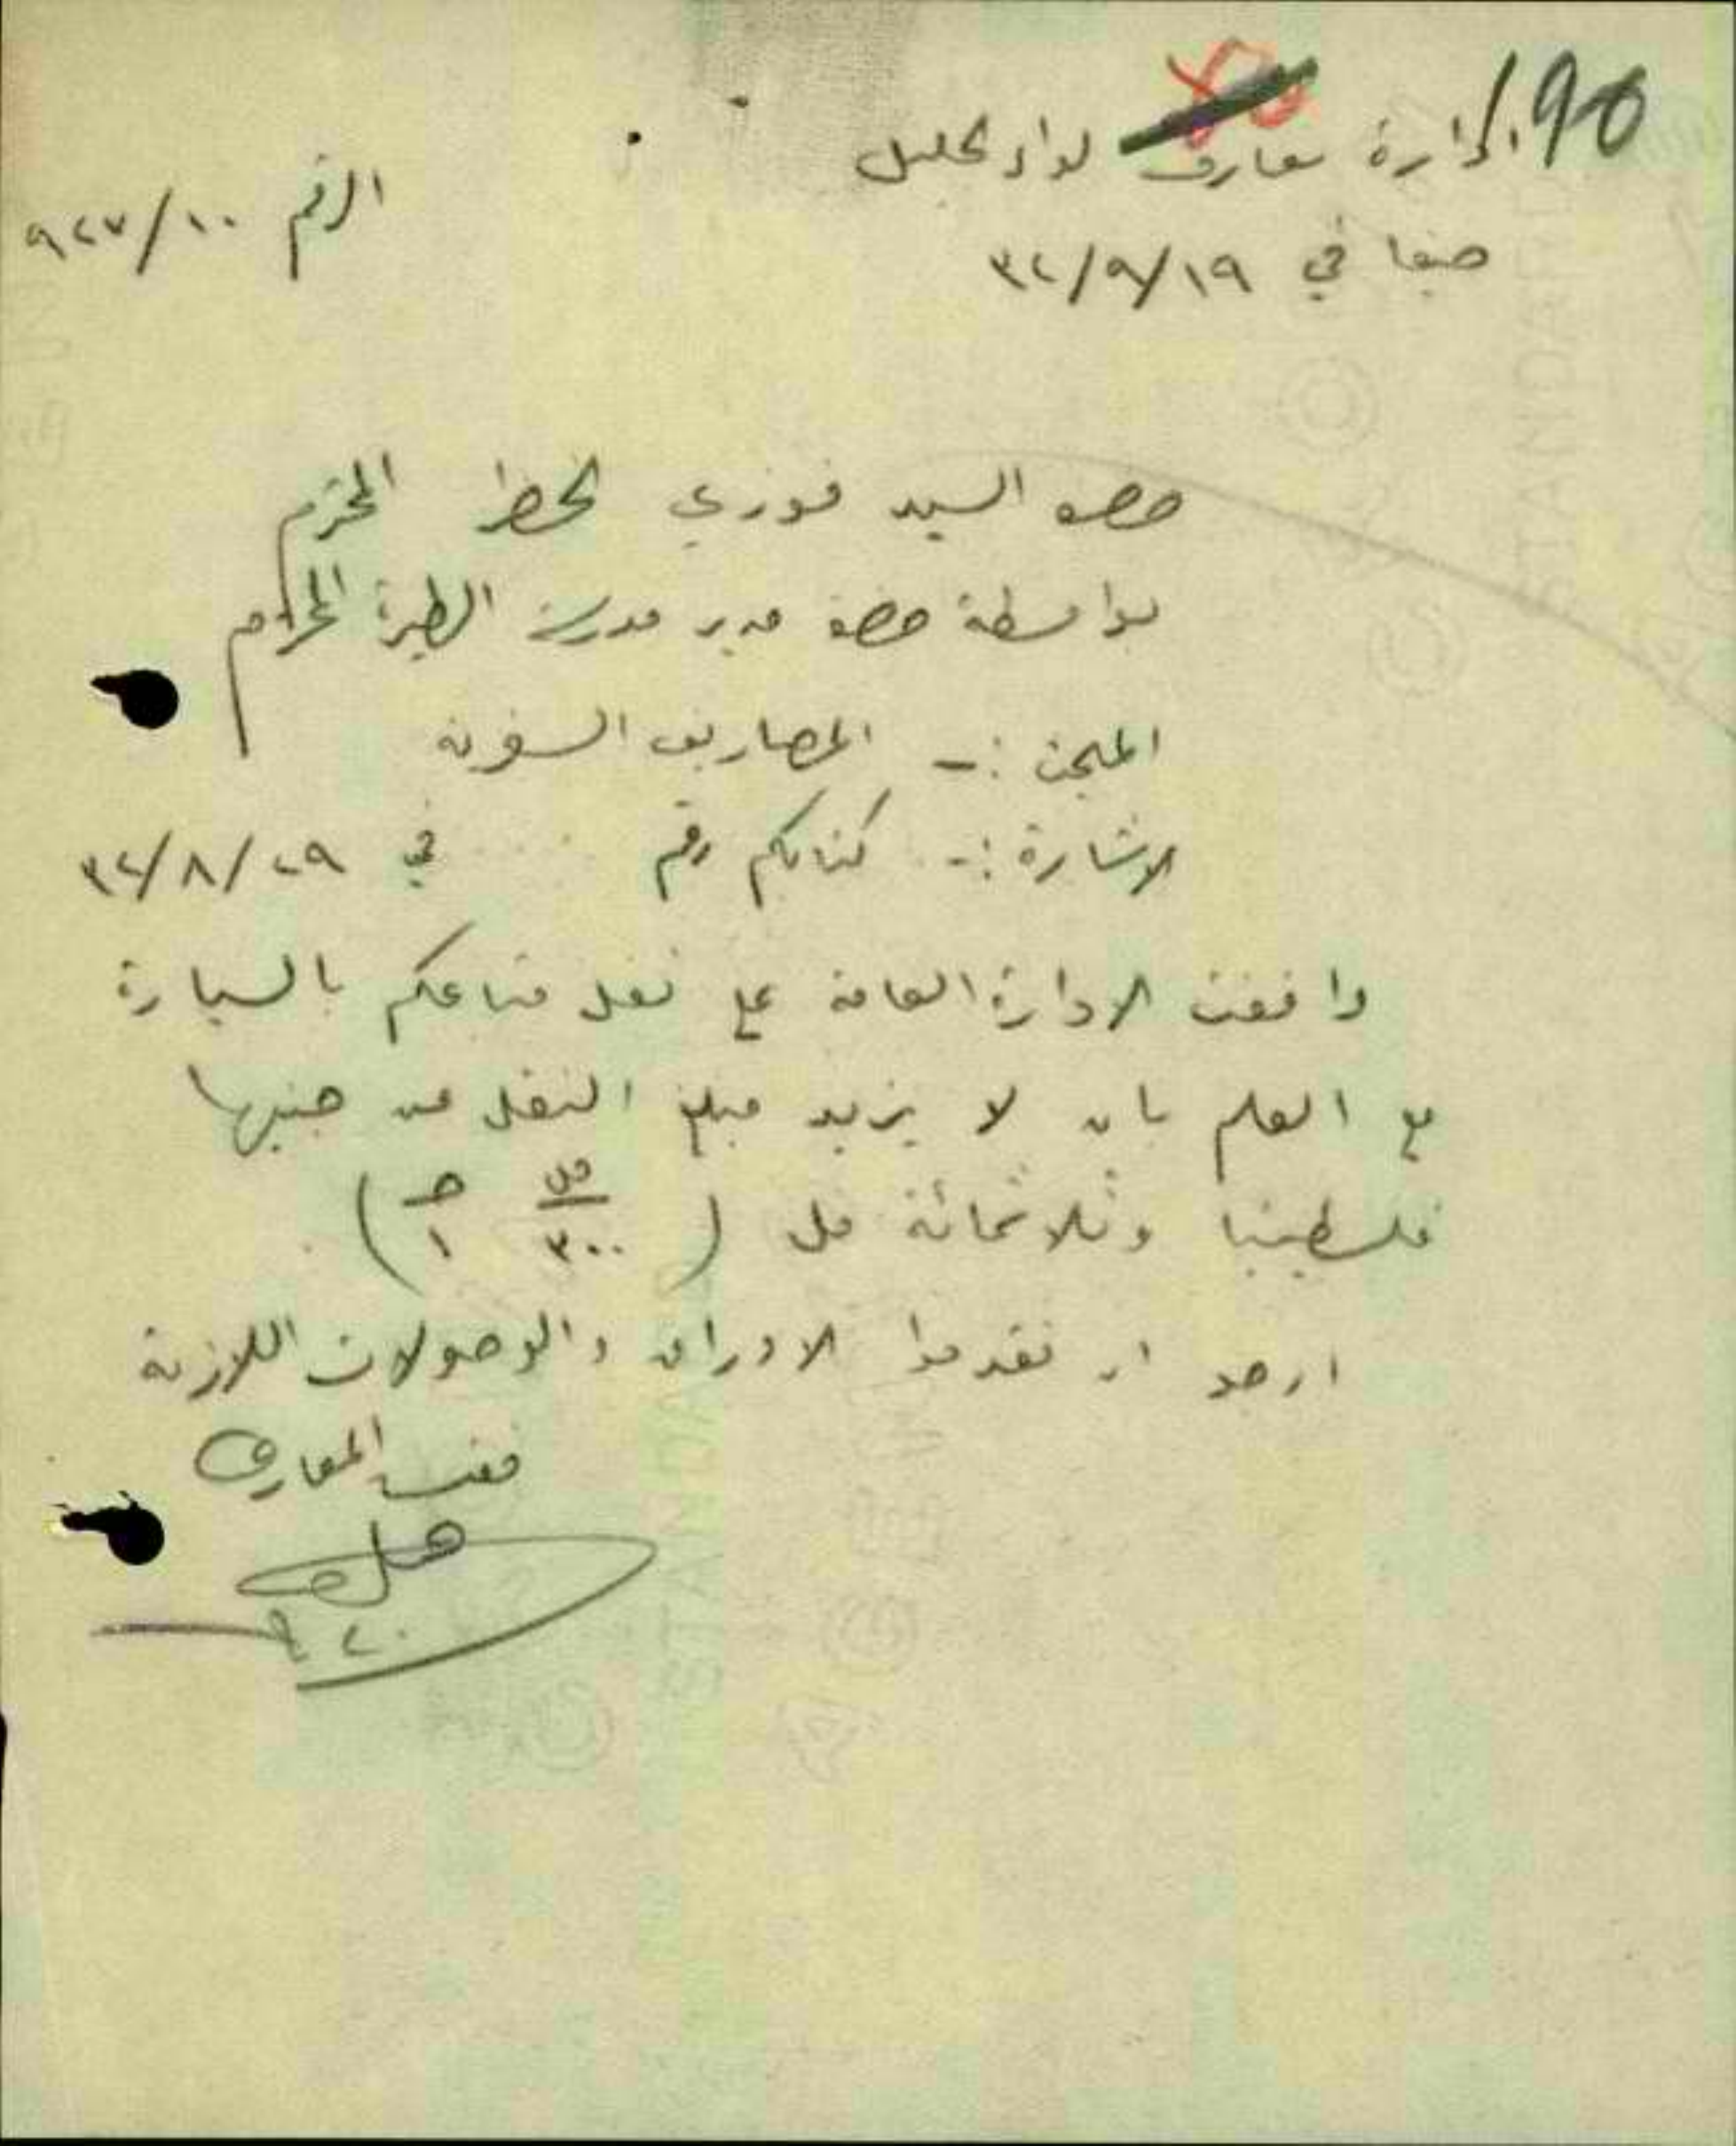 190
ادارة معارف لواء الجليل
الرقم ١٠/٩٢٧
حيفا في ٣٢/٩/١٩
حضرة السيد فوزي المحترم
بواسطة حضرة مدير مدرسة الطيرة المحترم
المبحث :- المصاريف السفرية
الاشارة :- كتابكم رقم في ٣٢/٨/٢٩
وافقت الادارة العامة على نقل متاعكم بالسيارة
مع العلم بان لا يزيد مبلغ النقل عن جنيها
فلسطينيا وثلاثمائة مل ( مل ٣٠٠ ج ١ )
ارجو ان تقدموا الاوراق والوصولات اللازمة
مفتش المعارف
٢٠